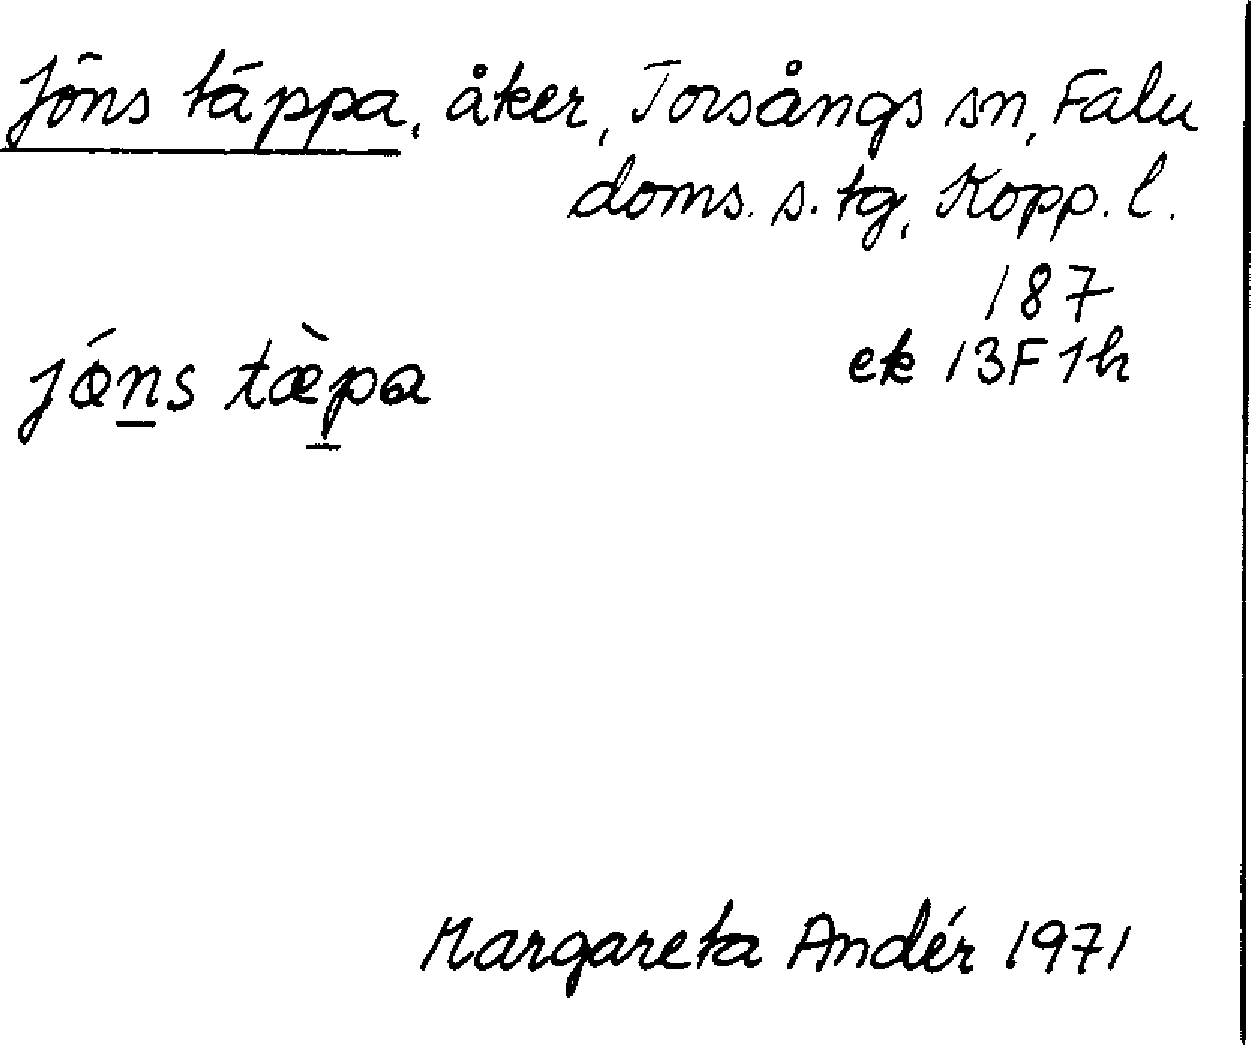 Jöns täppa, åker, Torsångs sn, Falu
doms. s. tg, Kopp. l.
187
ek 13F 1h
jǿn̲s tæ̀p̲a
Margareta Andér 1971